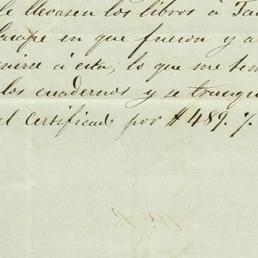 le llevasen los libros à
en que fueron y a
à esta, lo que me
los cuadernos y se
el Certificad por $489. %